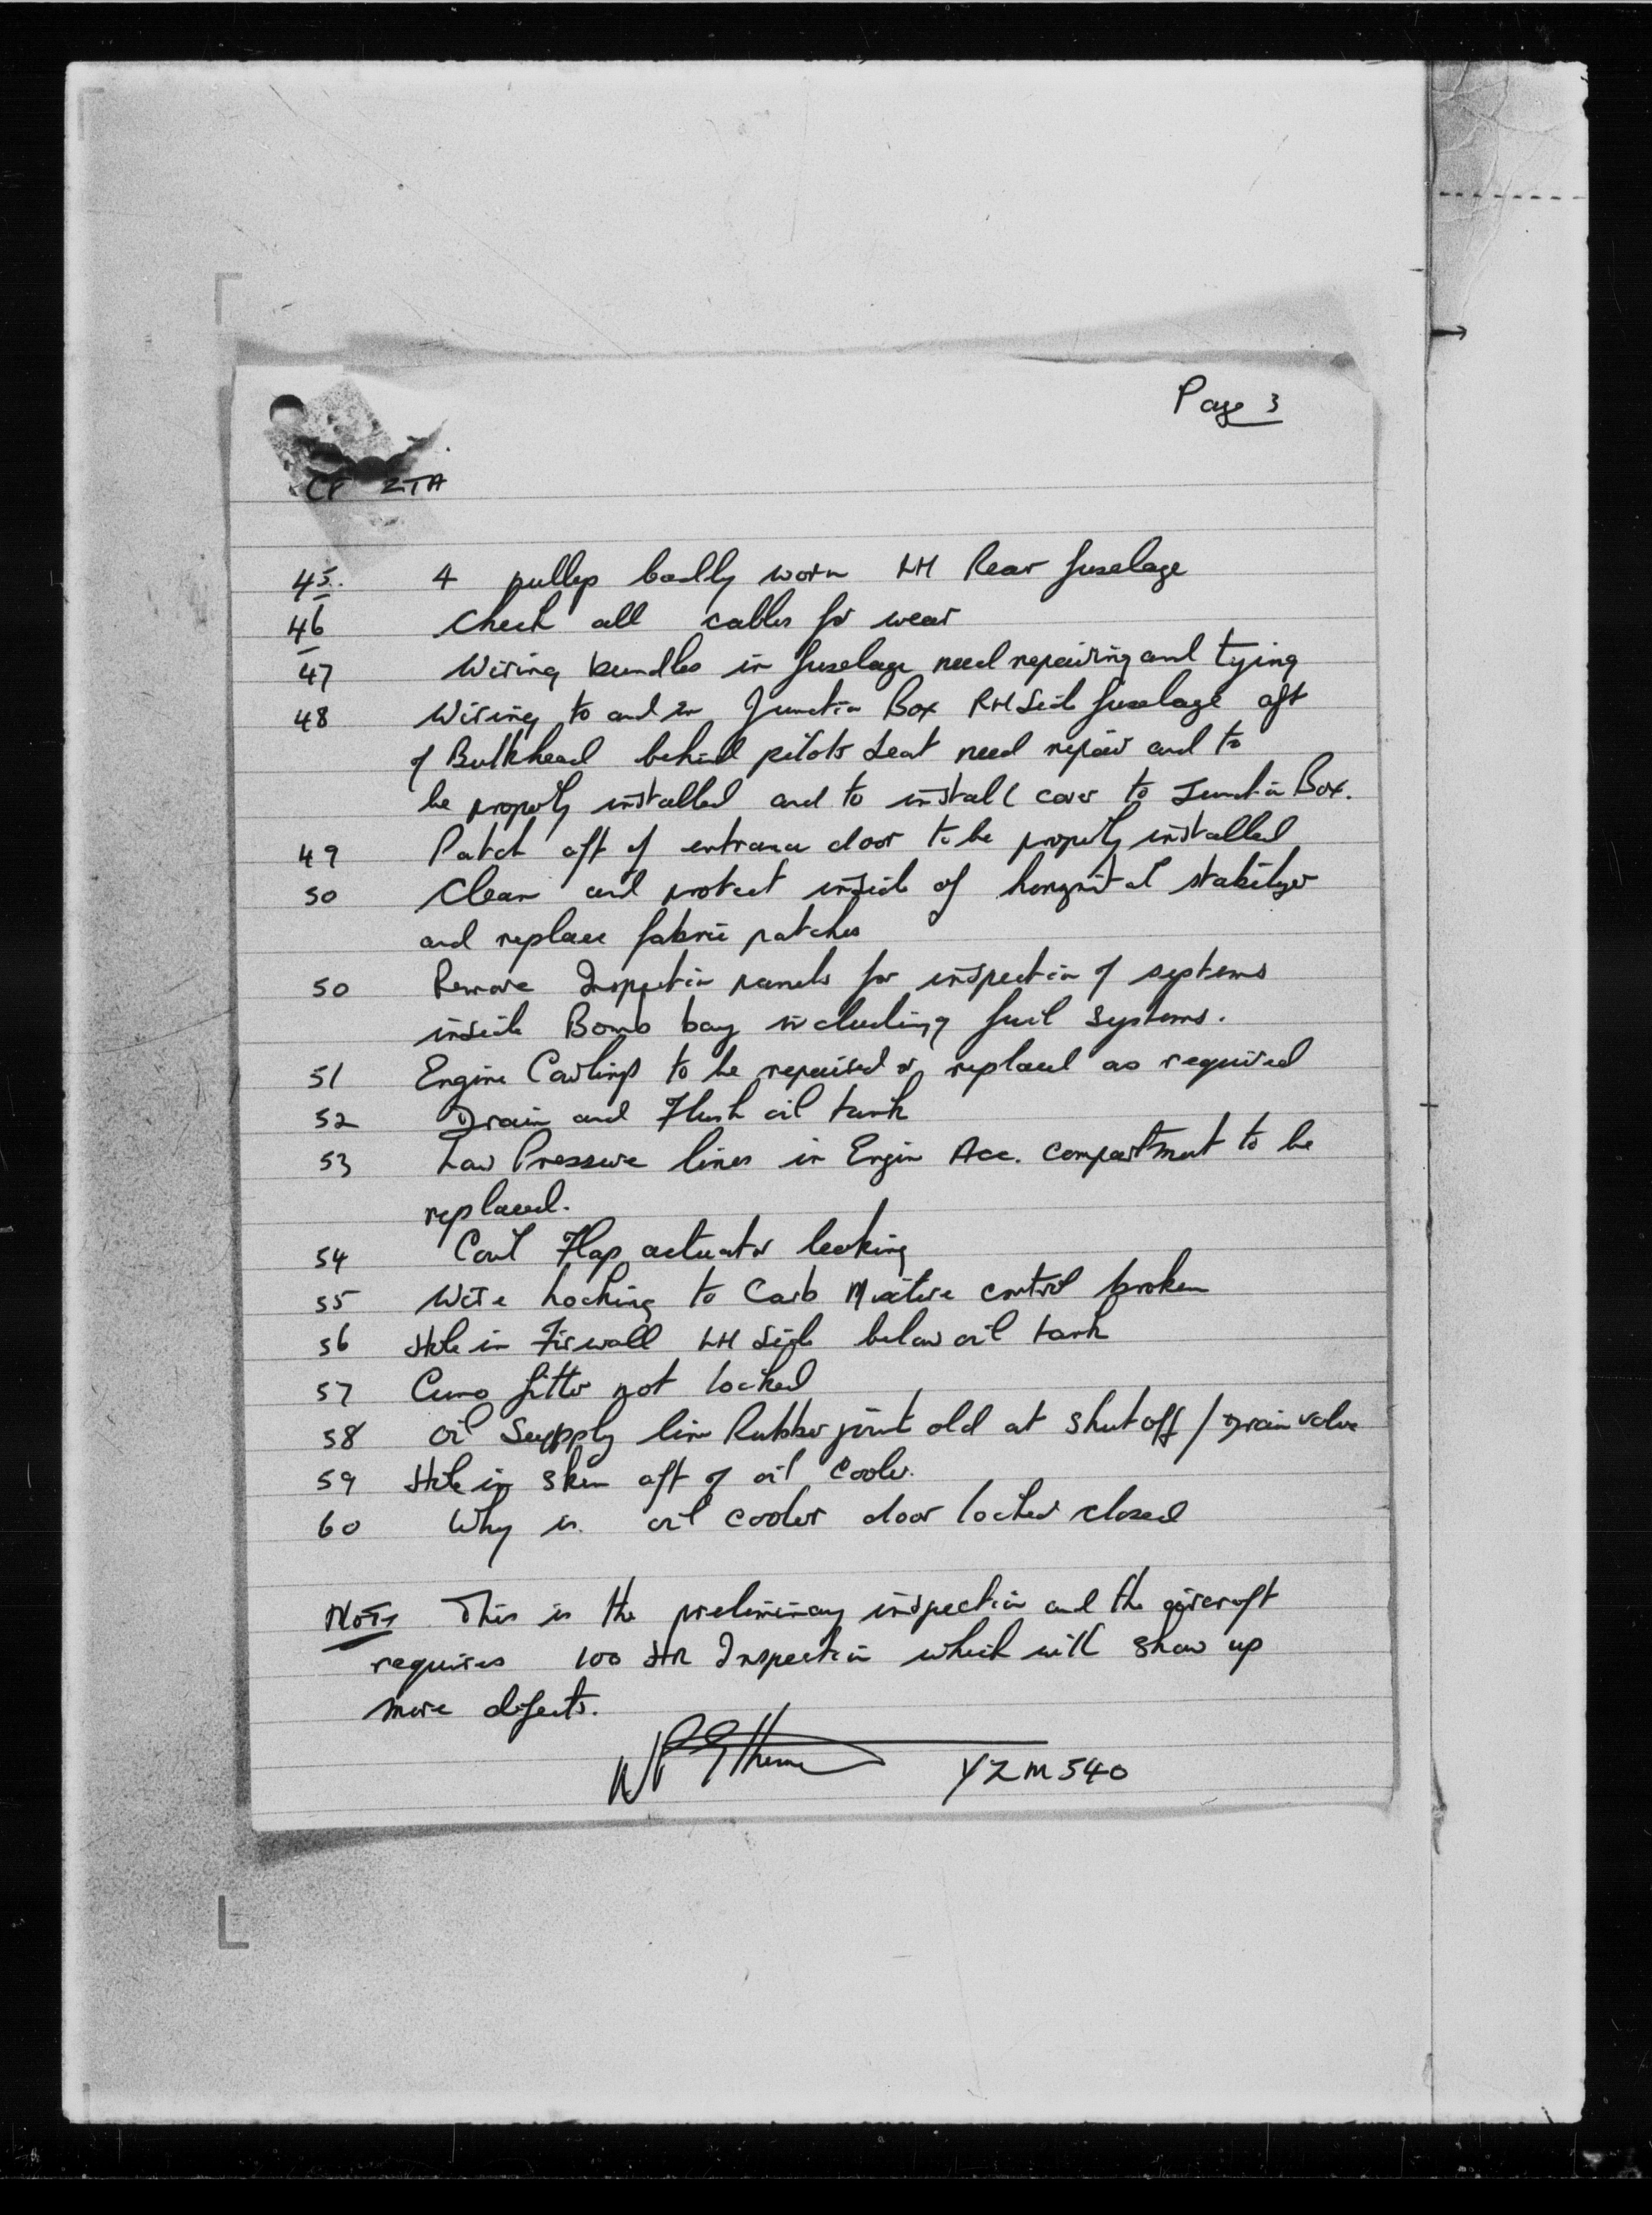 Page 3
CF ZTA
45. 4 pulleys badly worn LH Rear fuselage
46 Check all cables for wear
47 Wiring bundles in fuselage need repairing and tying
48 Wiring to and in Junction Box RH Side fuselage aft
of Bulkhead behind pilots seat need repair and to
be properly installed and to install cover to Junction Box.
49 Patch aft of entrance door to be properly installed
50 Clean and protect inside of horizontal stabilizer
and replace fabric patches
50 Remove Inspection panels for inspection of systems
inside Bomb bay including fuel systems.
51 Engine Cowlings to be repaired or replaced as required
52 Drain and Flush oil tank
53 Low Pressure lines in Engine Acc. compartment to be
replaced.
54 Cowl Flap actuator leaking
55 Wire Locking to Carb Mixture control broken
56 Hole in Firewall LH Side below oil tank
57 Cuno filter not locked
58 Oil Supply line Rubber joint old at shut off / Drain valve
59 Hole in skin aft of oil cooler.
60 Why is oil cooler door locked closed
Note This is the preliminary inspection and the aircraft
requires 100 HR Inspection which will show up
more defects.
YZM 540